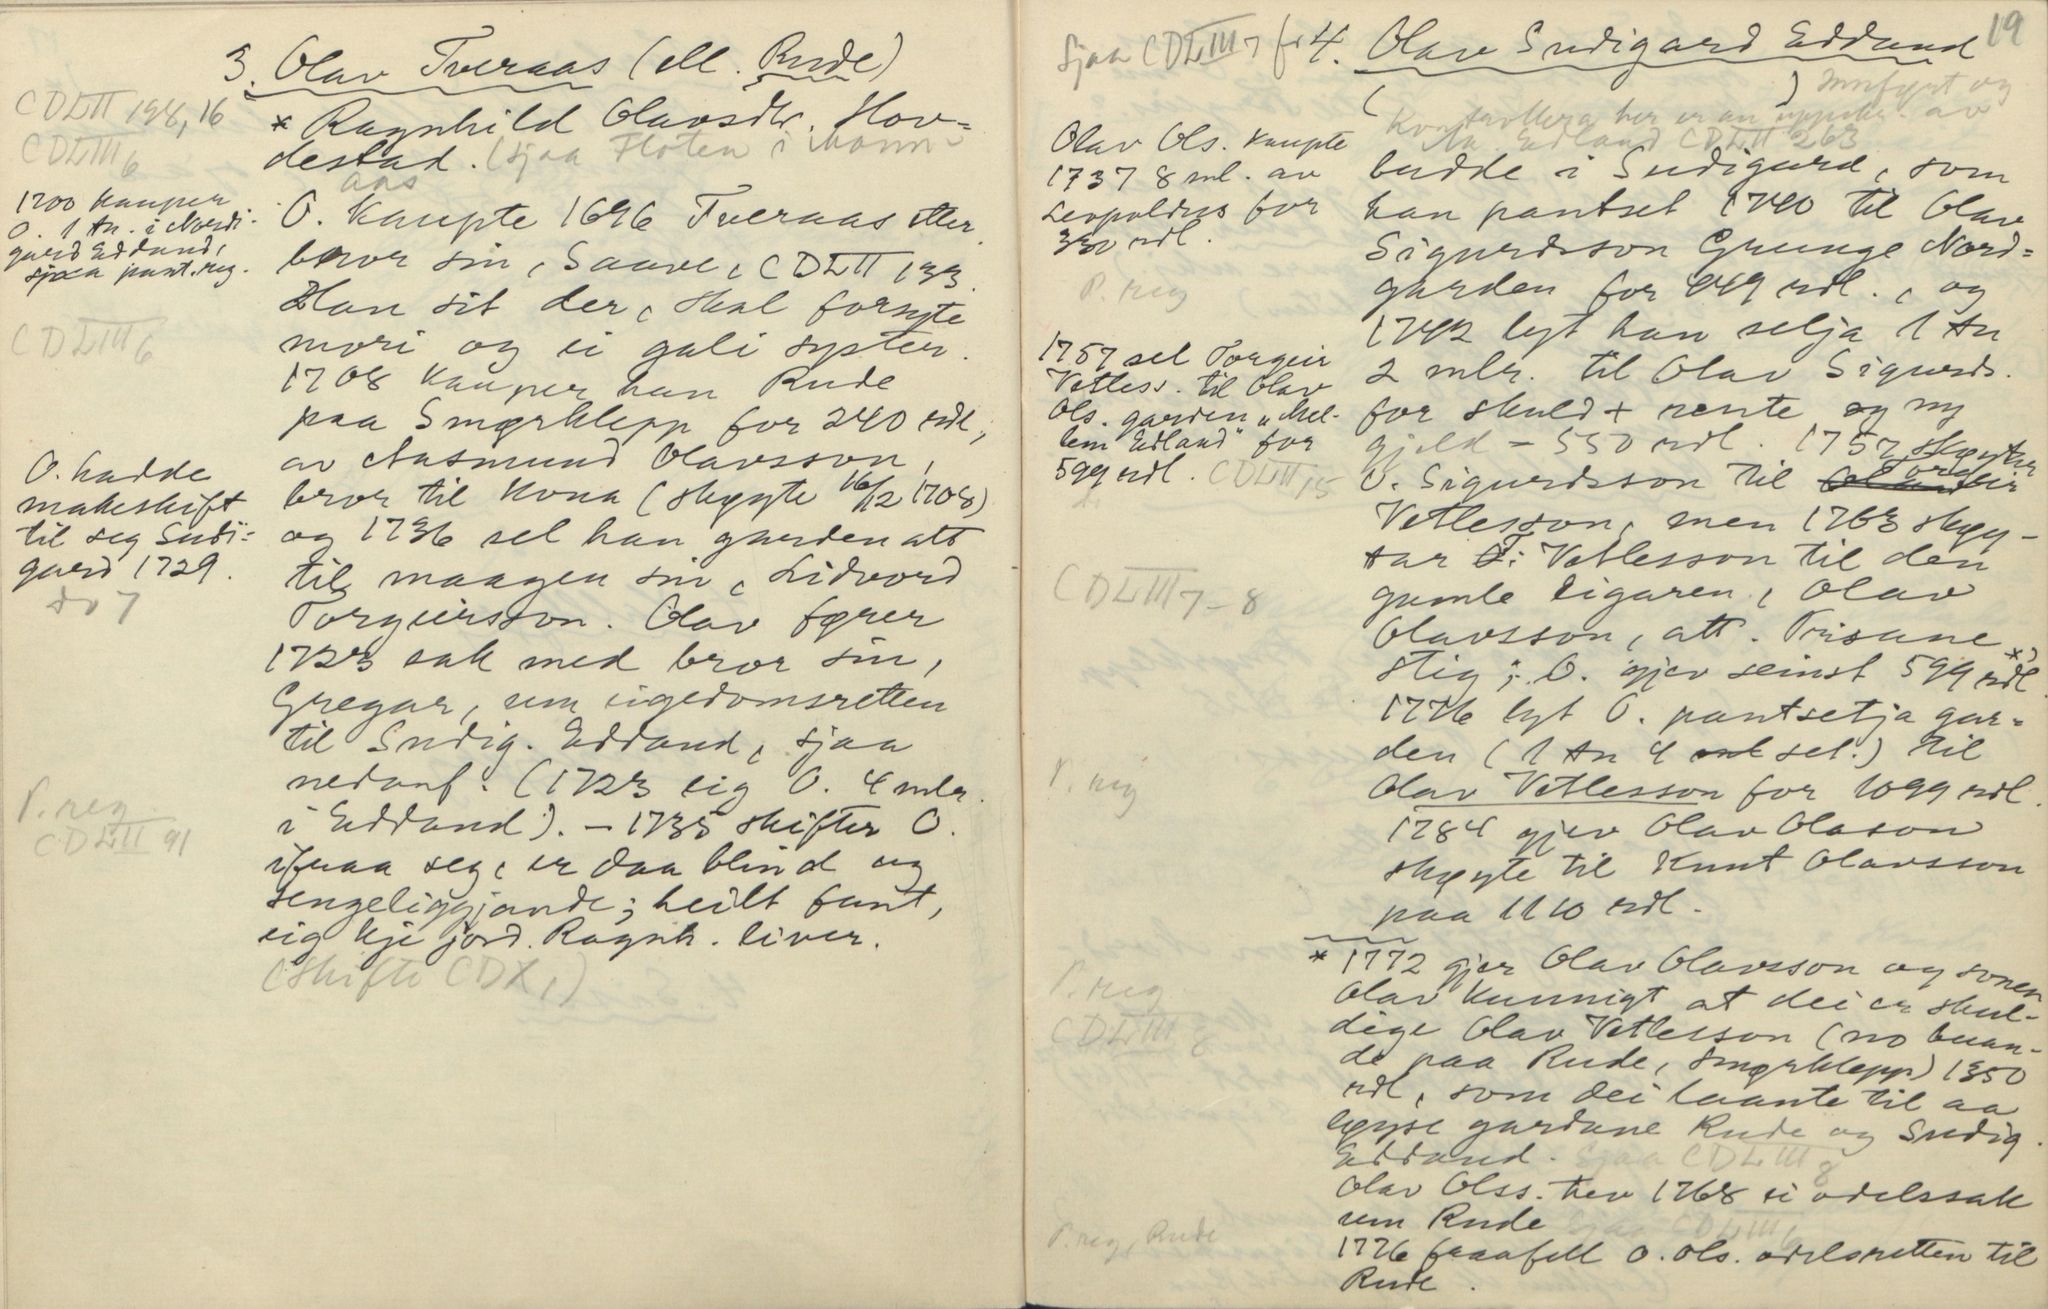 3. Olav Tveraas (ell. Rude)
* Ragnhild Olavsdtr. Hov=
destad. (sjaa Floten i Mann-
aas
O. kaupte 1696 Tveraas etter
bror sin, Saave, CDLII 133.
Han sit der, skal forsyte
mori og ei gali syster.
1708 kauper han Rude
paa Smørklepp for 240 rdl.,
av Aasmund Olavsson,
bror til kona (skøyte 16/12 1708)
og 1736 sel han garden att
til maagen sin, Lidvord
Torgeirsson. Olav fører
1723 sak med bror sin,
Gregar, um eigedomsretten
til Sudig. Edland, sjaa
nedanf. (1723 eig O. 4 mlr.
i Edland). – 1735 skifter O.
ifraa seg, er daa blind og
sengeliggjande; heilt fant,
eig kje jord. Ragnh. liver.
(Skifte CDX,)
CDLII 198, 16
CDLIII 6
1700 kauper
O. 1 tn. i Nordi-
gard Edland,
sjaa pant.reg.
CDLIII 6
O. hadde
makeskift
til seg Sudi=
gard 1729.
do 7
P. reg
CDLII 91
19
Sjaa CDLIII 7 fr 4. Olav Sudigard Edland
( ) innført og
Kontrollera her er an uppskr. av
Edland CDLII 263
budde i Sudigard, som
han pantset 1740 til Olav
Sigurdsson Grunge Nord=
garden for 449 rdl., og
1742 lyt han selja 1 tn
2 mlr. til Olav Sigurds.
for skuld + rente og ny
gjeld – 550 rdl. 1757 skøyter
O. Sigurdsson til Torgeir
Vetlesson, men 1763 skøy-
tar T. Vetlesson til den
gamle eigaren, Olav
Olavsson, att. Prisane
stig; O. gjev seinst 599 rdl. *)
1776 lyt O. pantsetja gar=
den (1 tn 4 sel.) til
Olav Vetlesson for 1099 rdl.
1784 gjev Olav Olason
skøyte til Knut Olavsson
paa 1110 rdl.
* 1772 gjer Olav Olavsson og sonen
Olav kunnigt at dei er skul-
dige Olav Vetlesson (no buan-
de paa Rude, Smørklepp) 1350
rdl, som dei laante til aa
løyse gardane Rude og Sudig.
Edland. Sjaa CDLIII 8
Olav Olss. hev 1768 ei odelssak
um Rude Sjaa CDLIII 6
1776 fraafell O. Ols. odelsretten til
Rude.
Olav Ols. kaupte
1737 8 ml. av
Leopoldus for
330 rdl.
P. reg
1757 sel Torgeir
Vetless. til Olav
Ols. garden "Mel-
lem Edland" for
599 rdl. CDLII 15
CDLIII 7-8
P. reg
P. reg
CDLIII 8
P. reg, Rude